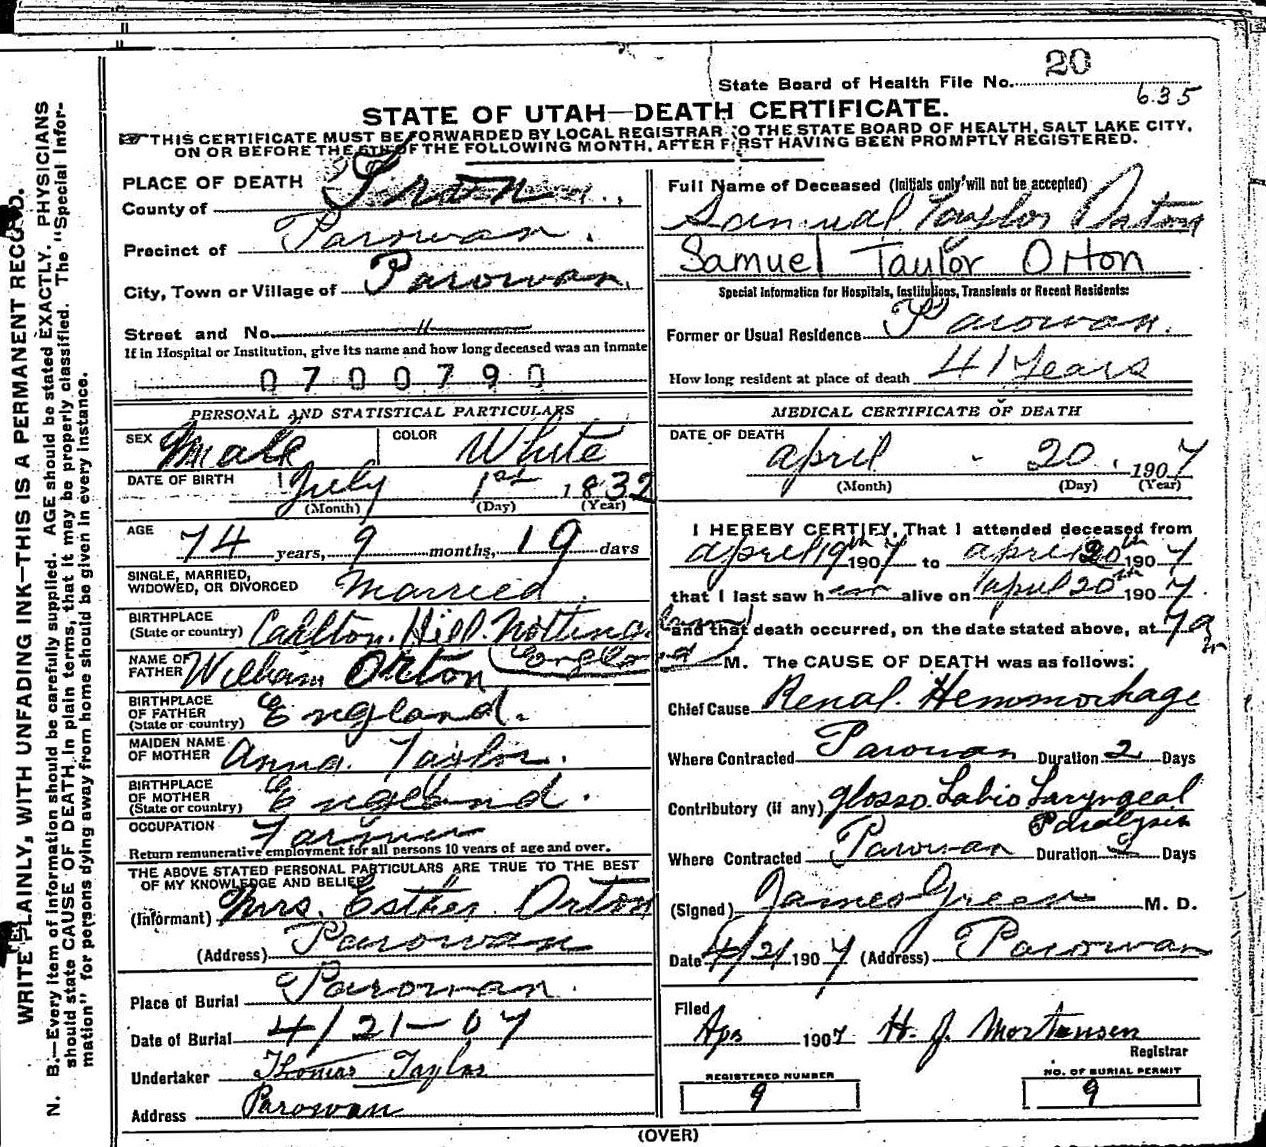 State Board of Health File No. 20
635
STATE OF UTAH—DEATH CERTIFICATE.
THIS CERTIFICATE MUST BE FORWARDED BY LOCAL REGISTRAR TO THE STATE BOARD OF HEALTH, SALT LAKE CITY,
ON OR BEFORE THE 5TH OF THE FOLLOWING MONTH, AFTER FIRST HAVING BEEN PROMPTLY REGISTERED.
WRITE PLAINLY, WITH UNFADING INK—THIS IS A PERMANENT RECORD.
N. B.—Every item of information should be carefully supplied. AGE should be stated EXACTLY. PHYSICIANS
should state CAUSE OF DEATH in plain terms, that it may be properly classified. The "Special Infor-
mation" for persons dying away from home should be given in every instance.
PLACE OF DEATH
County of Iron
Precinct of Parowan.
City, Town or Village of Parowan.
Street and No. "
If in Hospital or Institution, give its name and how long deceased was an inmate
0700790
PERSONAL AND STATISTICAL PARTICULARS
SEX Male COLOR White
DATE OF BIRTH July 1st 1832
(Month) (Day) (Year)
AGE 74 years, 9 months, 19 days
SINGLE, MARRIED,
WIDOWED, OR DIVORCED Married
BIRTHPLACE
(State or country) Carlton. Hill. Nottingham
England
NAME OF
FATHER William Orton
BIRTHPLACE
OF FATHER
(State or country) England.
MAIDEN NAME
OF MOTHER Anna. Taylor.
BIRTHPLACE
OF MOTHER
(State or country) England.
OCCUPATION Farmer
Return remunerative employment for all persons 10 years of age and over.
THE ABOVE STATED PERSONAL PARTICULARS ARE TRUE TO THE BEST
OF MY KNOWLEDGE AND BELIEF
(Informant) Mrs. Esther Orton
(Address) Parowan
Place of Burial Parowan.
Date of Burial 4/21-07
Undertaker Thomas Taylor
Address Parowan
Full Name of Deceased (Initials only will not be accepted)
Samual Taylor Orton
Samuel Taylor Orton
Special Information for Hospitals, Institutions, Transients or Recent Residents:
Former or Usual Residence Parowan.
How long resident at place of death 41 Years
MEDICAL CERTIFICATE OF DEATH
DATE OF DEATH
april - 20. 1907
(Month) (Day) (Year)
I HEREBY CERTIFY, That I attended deceased from
april 19th 1907 to april 20th 1907
that I last saw h im alive on april 20th 1907
and that death occurred, on the date stated above, at 7 a
M. The CAUSE OF DEATH was as follows:
Chief Cause Renal Hemmorhage
Where Contracted Parowan Duration 2 Days
Contributory (if any) glosso Labio Laryngeal
Paralysis
Where Contracted Parowan Duration 2 Days
(Signed) James Green M. D.
Date 4/21 1907 (Address) Parowan
Filed
Apr 1907 H. J. Mortensen
Registrar
REGISTERED NUMBER
9
NO. OF BURIAL PERMIT
9
(OVER)